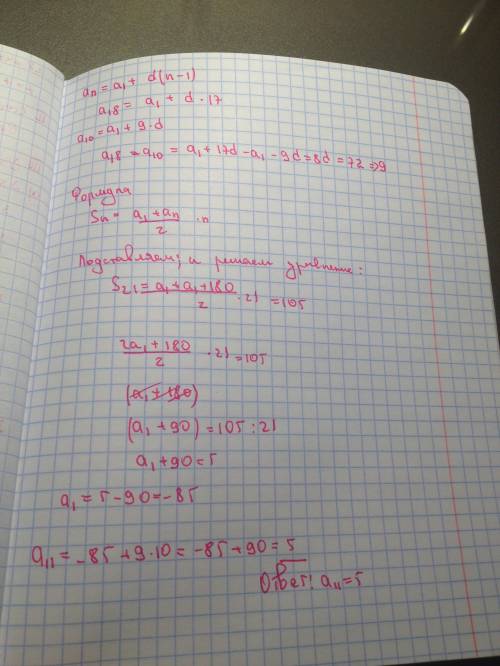 an = a₁ + d(n-1)
a₁₈ = a₁ + d · 17
a₁₀ = a₁ + 9 · d
a₁₈ - a₁₀ = a₁ + 17d - a₁ - 9d = 8d = 72 ⇒ 9
Формула
Sn = (a₁ + an)/2 · n
Подставляем; и решаем уравнение:
S₂₁ = (a₁ + a₁ + 180)/2 · 21 = 105
(2a₁ + 180)/2 · 21 = 105
(a₁ + 180)
(a₁ + 90) = 105 : 21
a₁ + 90 = 5
a₁ = 5 - 90 = -85
a₁₁ = -85 + 9 · 10 = -85 + 90 = 5
Ответ: a₁₁ = 5